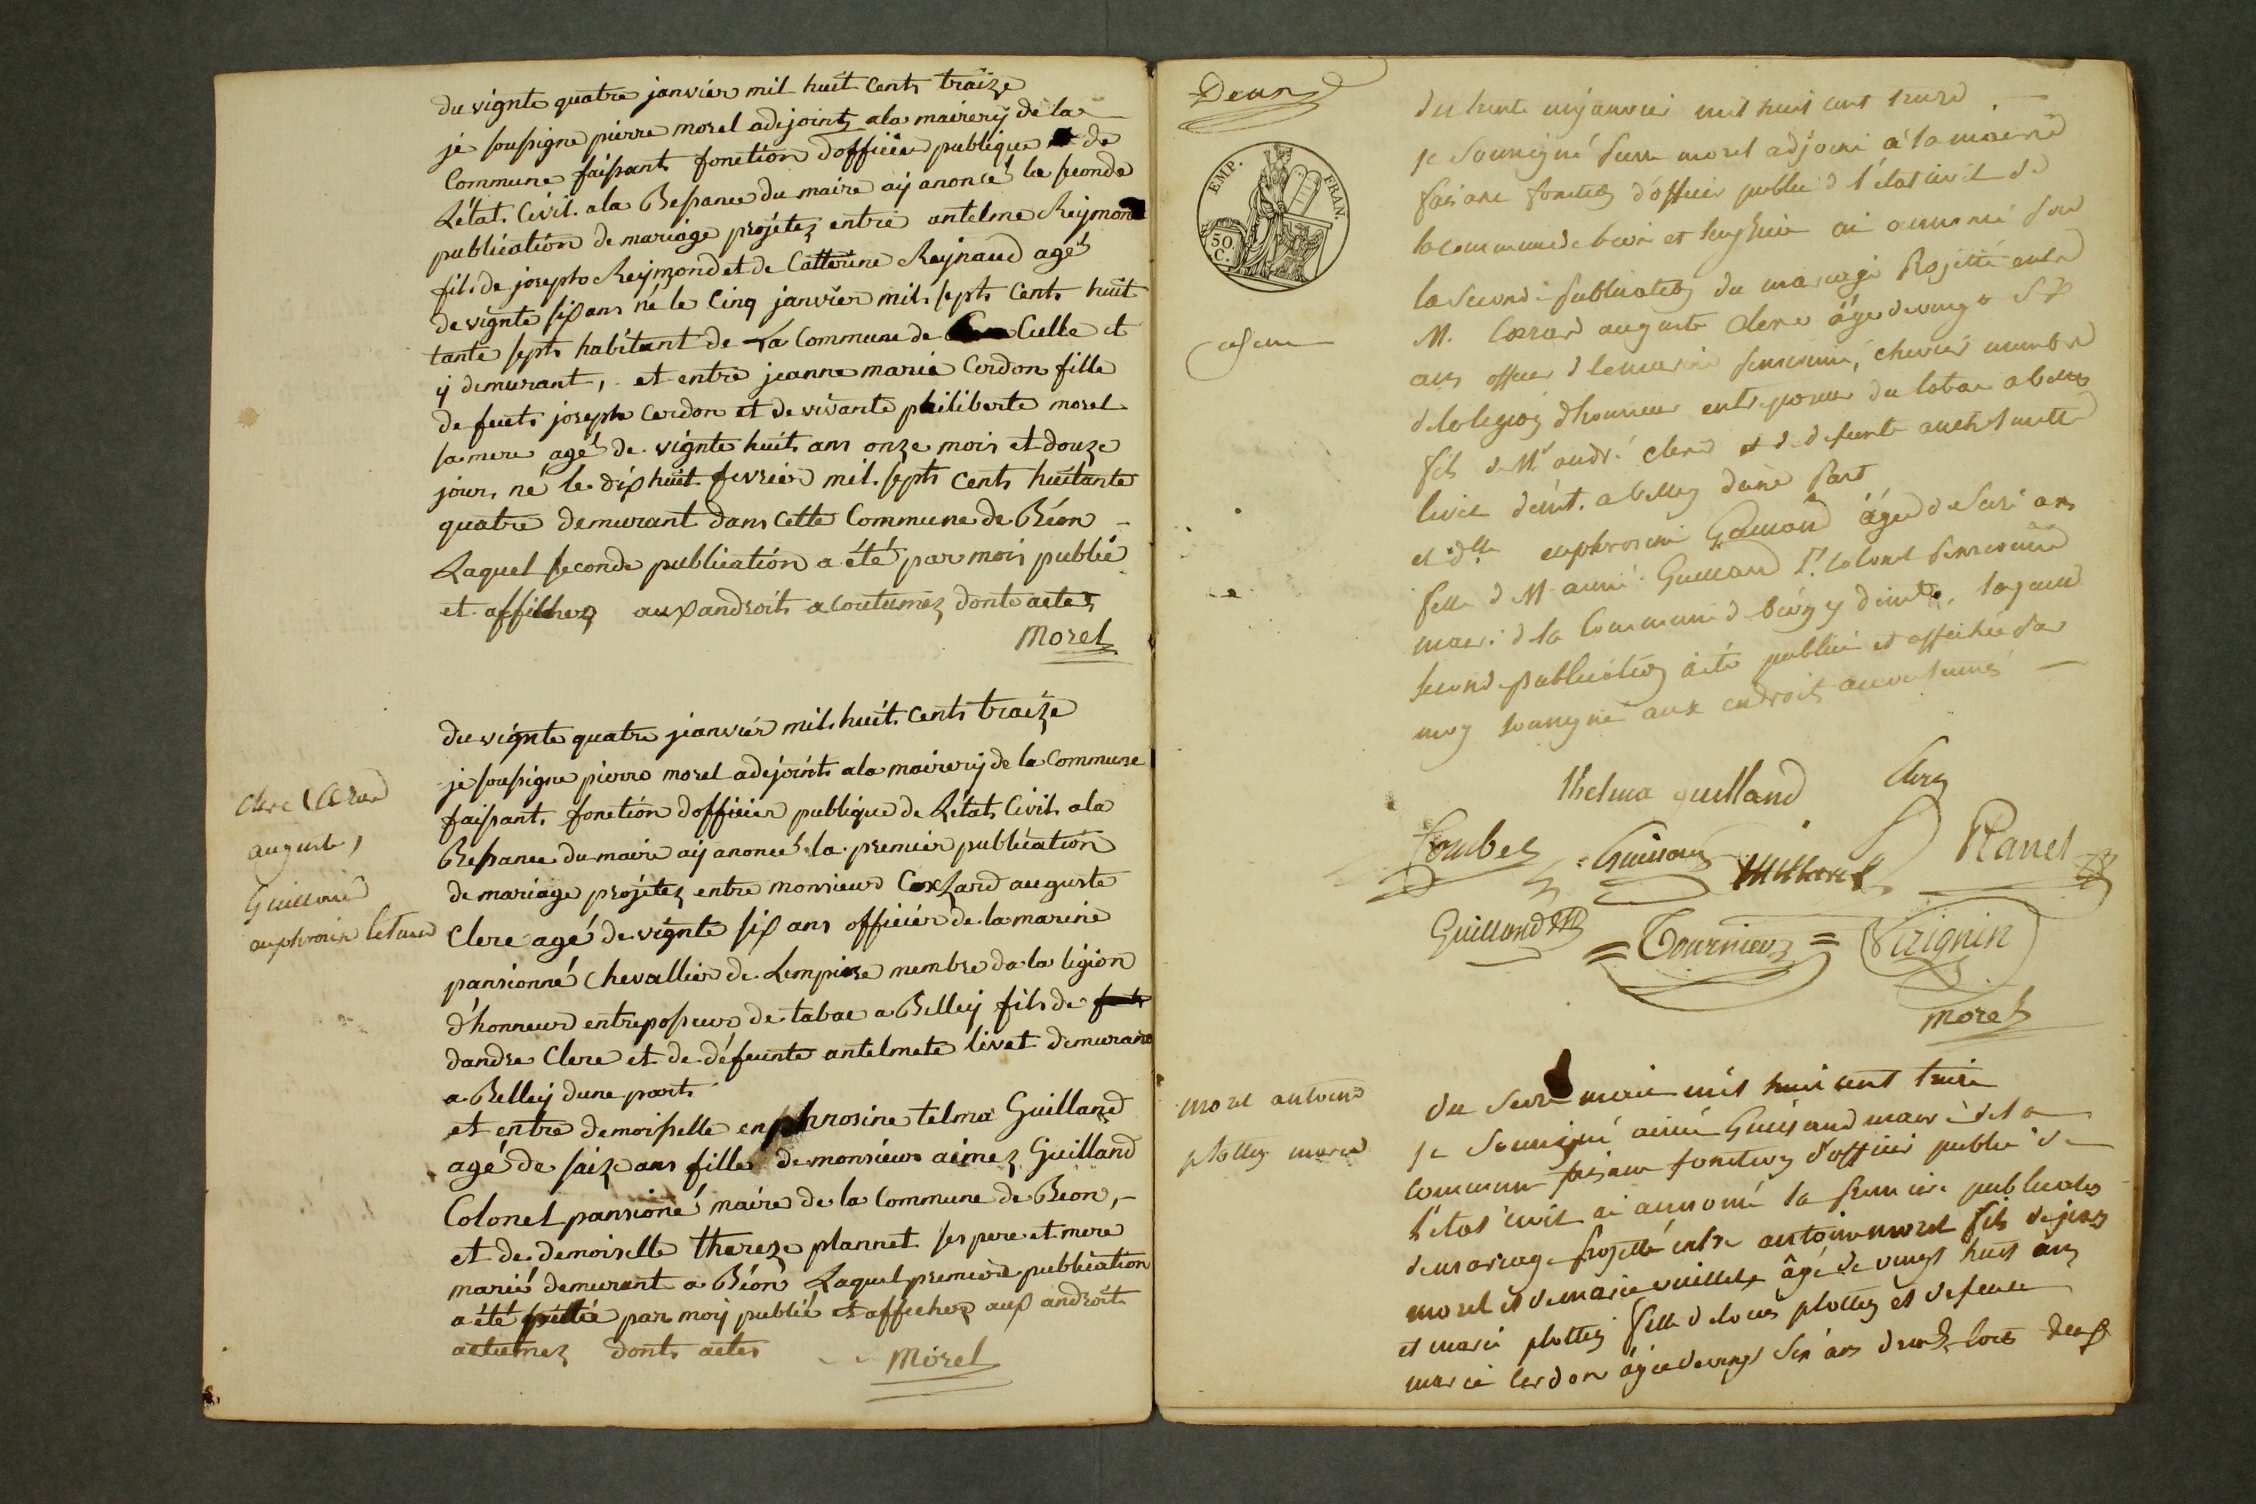 du vignte quatre janvier mil huit cents traize
je soussigne pierre morel adejoints ala mairery de la
Commune faissant fonction dofficier publique de
Létat. Civil. ala Bessance du maire aÿ anoncé la seconde
publication de mariage projétez entre antelme Reÿmond
fils de joseph Reÿmond et de Catterine Reynaud agé
de vignte six ans né le Cinq janvier mil septs Cents huit
tante septs habitant de La Commune de Culle et
ÿ demurant, et entre jeanne marie Cerdon fille
de feuts joseph Cerdon et de vivante philiberte morel
sa mere agé de vignte huit ans onze mois et douze
jours né le dix huit fevrier mil septs Cents huitante
quatre demurant dans Cette Commune de Béon
Laquel seconde publication a été par mois publié
et affichez aux androits acoutumez donts actes
Morel
du vignte quatre jeanvier mil huit Cents traize
je soussigne pierre morel adejoints ala mairery de la Commune
faissant fonction dofficier publique de Létat Civil ala
Bessance du maire aÿ anoncé la premier publication
de mariage projétez entre monsieur Coxzard auguste
Clerc agé de vignte six ans officier de la marine
pansionné Chevallier de Lempire membre de la légion
d'honneur entreposeur de tabac a Belleÿ fils de
dandre Clerc et de défeunte antelmete livet demurant
a Belleÿ dune parts
et entre demoisselle enphrosine telma Guilland
agé de saize ans fille de monsieur aimez Guilland
Colonel pansioné maire de la Commune de Béon,
et de demoiselle thereze plannet ses pere et mere
marié demurant a Béon Laquel premiere publication
a été par moÿ publié et affichez aux androits
actumez donts actes
Morel
Clerc
auguste,
Deux
EMP. FRAN.
50. C.
du trente un janvier mil huit cent treize
je soussigné pierre morel adjoint à la mairie
faisant fonction d'officier public d l'état civil de
la commune de beon et ai annoncé
la seconde publication du mariage Projetté entre
M. Coxrard auguste Clerc âgé de vingt six
ans officier d la marine pensionné, chevalier membre
de la legion d'honneur entreposeur du tabac a belley
fils de Mr andré Clerc et de defunte anthelmette
livet demt. a belley d'une Part
et dlle euphrosine Guilland âgée de seize ans
fille d M aimé Guilland Lt Colonel pensionné
maire d la Commune d béon y demte. laquelle
seconde publication à été publiée et affichée par
moy soussigné aux endroits accoutumés
thelma guilland Clerc
Combes Guilland Planet
Guilland Tournier Virignin
Morel
morel antoine
plottey marie
du seize mil huit cent treize
je soussigné aimé Guilland maire de la
commune faisant fonction d'officier public de
l'etat civil ai annoncé la premiere publication
de mariage projetté entre antoine morel fils de jean
morel et de marie vuillet âgé de vingt huit ans
et marie plottey fille de louis plottey et defeunte
marie Cerdon âgée de vingt six ans